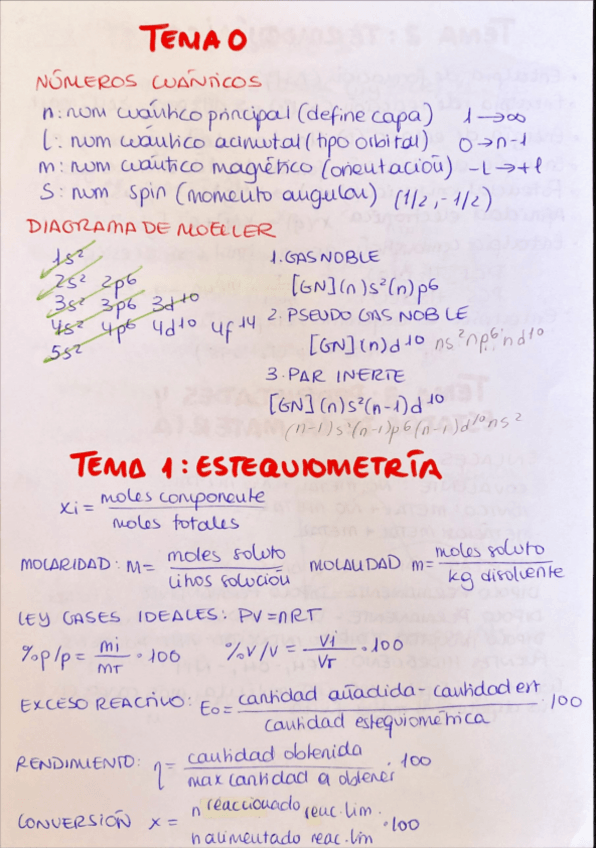 TEMA 0
NÚMEROS CUÁNTICOS
n: num cuántico principal (define capa) 1→∞
l: num cuántico acimutal (tipo orbital) 0→n-1
m: num cuántico magnético (orientación) -l→+l
S: num spin (momento angular) (1/2, -1/2)
DIAGRAMA DE MOELLER
1s²
2s² 2p6
3s² 3p6 3d10
4s² 4p6 4d10 4f14
5s²
1. GAS NOBLE
[GN](n)s²(n)p6
2. PSEUDO GAS NOBLE
[GN](n)d10 ns²np6nd10
3. PAR INERTE
[GN](n)s²(n-1)d10
(n-1)s²(n-1)p6(n-1)d10ns²
TEMA 1: ESTEQUIOMETRÍA
xi = moles componente / moles totales
MOLARIDAD: M = moles soluto / litros solución MOLALIDAD m = moles soluto / kg disolvente
LEY GASES IDEALES: PV = nRT
%p/p = mi / mT · 100 %v/v = Vi / VT · 100
EXCESO REACTIVO: Eo = cantidad añadida - cantidad est / cantidad estequiométrica · 100
RENDIMIENTO: η = cantidad obtenida / max cantidad a obtener · 100
CONVERSIÓN x = n reaccionado reac. lim. / n alimentado reac. lim · 100